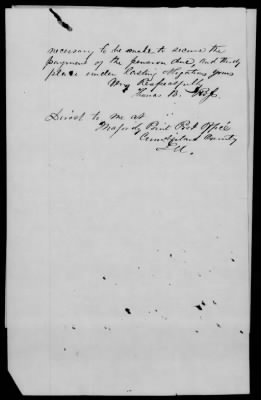 necessary to be made to secure the
payment of the pension due, and thereby
place under lasting obligations yours
Very Respectfully
Thomas B. Ross.
Direct to me at
Majority Point Post Office
Cumberland County
Ill.